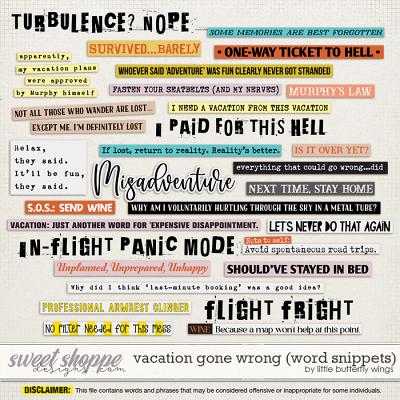 TURBULENCE? NOPE
SOME MEMORIES ARE BEST FORGOTTEN
SURVIVED...BARELY
- ONE-WAY TICKET TO HELL -
apparently,
my vacation plans
were approved
by Murphy himself
WHOEVER SAID 'ADVENTURE' WAS FUN CLEARLY NEVER GOT STRANDED
FASTEN YOUR SEATBELTS (AND MY NERVES)
MURPHY'S LAW
NOT ALL THOSE WHO WANDER ARE LOST...
EXCEPT ME. I'M DEFINITELY LOST
I NEED A VACATION FROM THIS VACATION
I PAID FOR THIS HELL
Relax,
they said.
It'll be fun,
they said.
If lost, return to reality. Reality's better.
IS IT OVER YET?
Misadventure
everything that could go wrong...did
NEXT TIME, STAY HOME
S.O.S.: SEND WINE
WHY AM I VOLUNTARILY HURTLING THROUGH THE SKY IN A METAL TUBE?
VACATION: JUST ANOTHER WORD FOR 'EXPENSIVE DISAPPOINTMENT.
LET'S NEVER DO THAT AGAIN
IN-FLIGHT PANIC MODE
Note to self:
Avoid spontaneous road trips.
Unplanned, Unprepared, Unhappy
SHOULD'VE STAYED IN BED
Why did I think 'last-minute booking' was a good idea?
PROFESSIONAL ARMREST CLINGER
FLIGHT FRIGHT
NO FILTER NEEDED FOR THIS MESS
WINE Because a map won't help at this point
sweet shoppe
designs.com
vacation gone wrong (word snippets)
by little butterfly wings
DISCLAIMER: This file contains words and phrases that may be considered offensive or inappropriate for some individuals.